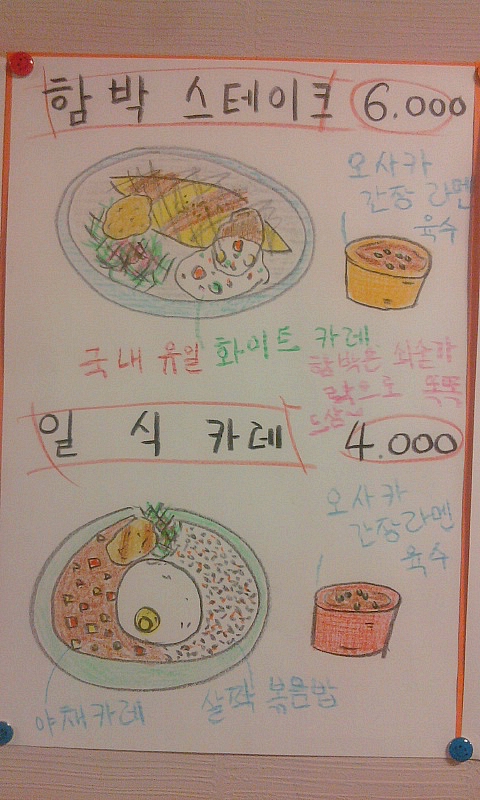 함박 스테이크 6.000
오사카
간장 라멘
육수
국내 유일 화이트 카레
함박은 쇠숟가
락으로 똑똑
드삼~
일 식 카레 4.000
오사카
간장라멘
육수
야채카레
살짝 볶음밥